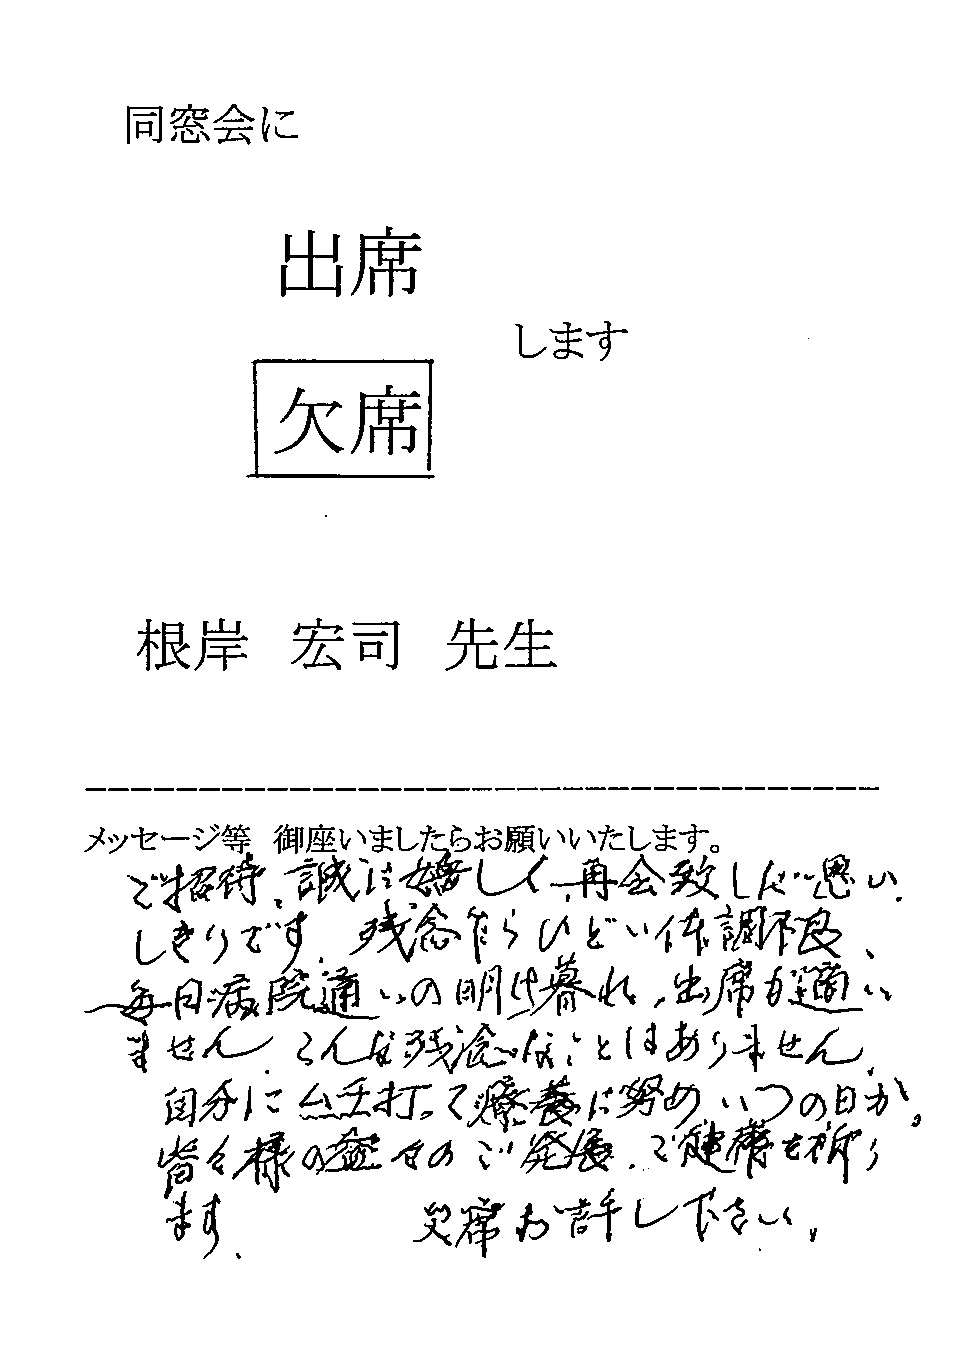 同窓会に
出席
します
欠席
根岸 宏司 先生
メッセージ等 御座いましたらお願いいたします。
ご招待、誠に嬉しく、再会致したい思い
しきりです。残念乍らひどい体調不良、
毎日病院通いの明け暮れ、出席が適い
ません。こんな残念なことはありません。
自分にムチ打って療養に努め、いつの日か。
皆々様の益々のご発展、ご健勝を祈り
ます。 欠席お許し下さい。